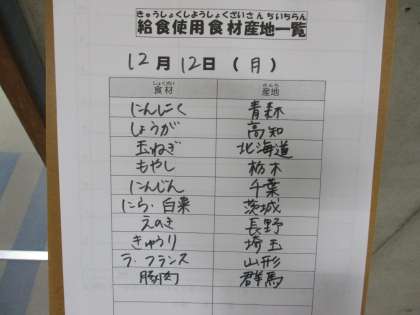 きゅうしょくしようしょくざいさんちいちらん
給食使用食材産地一覧
12月12日（月）
しょくざい さんち
食材 産地
にんにく 青森
しょうが 高知
玉ねぎ 北海道
もやし 栃木
にんじん 千葉
にら・白菜 茨城
えのき 長野
きゅうり 埼玉
ラ・フランス 山形
豚肉 群馬